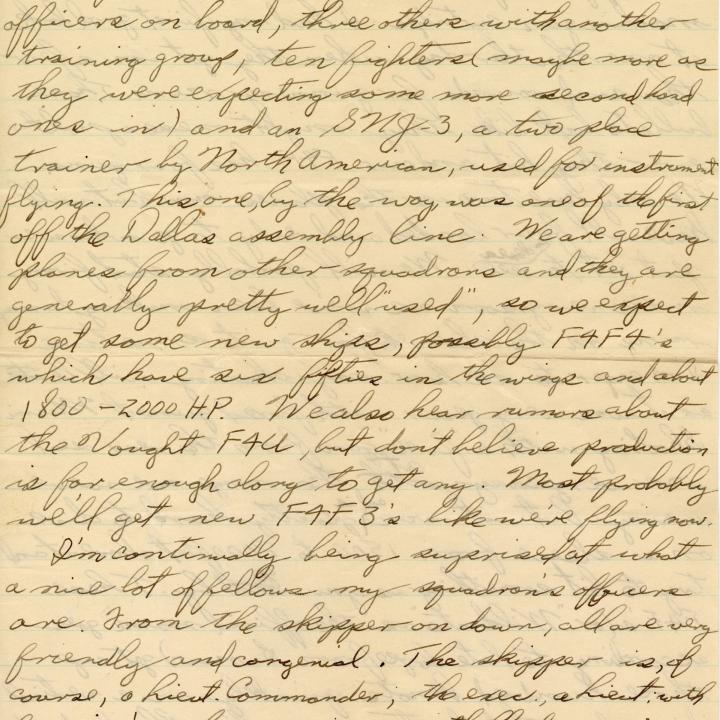 officers on board, three others with another
training group, ten fighters (maybe more as
they were expecting some more second hand
ones in) and an SNJ-3, a two place
trainer by North American, used for instrument
flying. This one, by the way, was one of the first
off the Dallas assembly line. We are getting
planes from other squadrons and they are
generally pretty well "used", so we expect
to get some new ships, possibly F4F4's
which have six fifties in the wings and about
1800-2000 H.P. We also hear rumors about
the Vought F4U, but don't believe production
is far enough along to get any. Most probably
we'll get new F4F3's like we're flying now.
I'm continually being surprised at what
a nice lot of fellows my squadron's officers
are. From the skipper on down, all are very
friendly and congenial. The skipper is, of
course, a Lieut. Commander, the exec., a Lieut. with